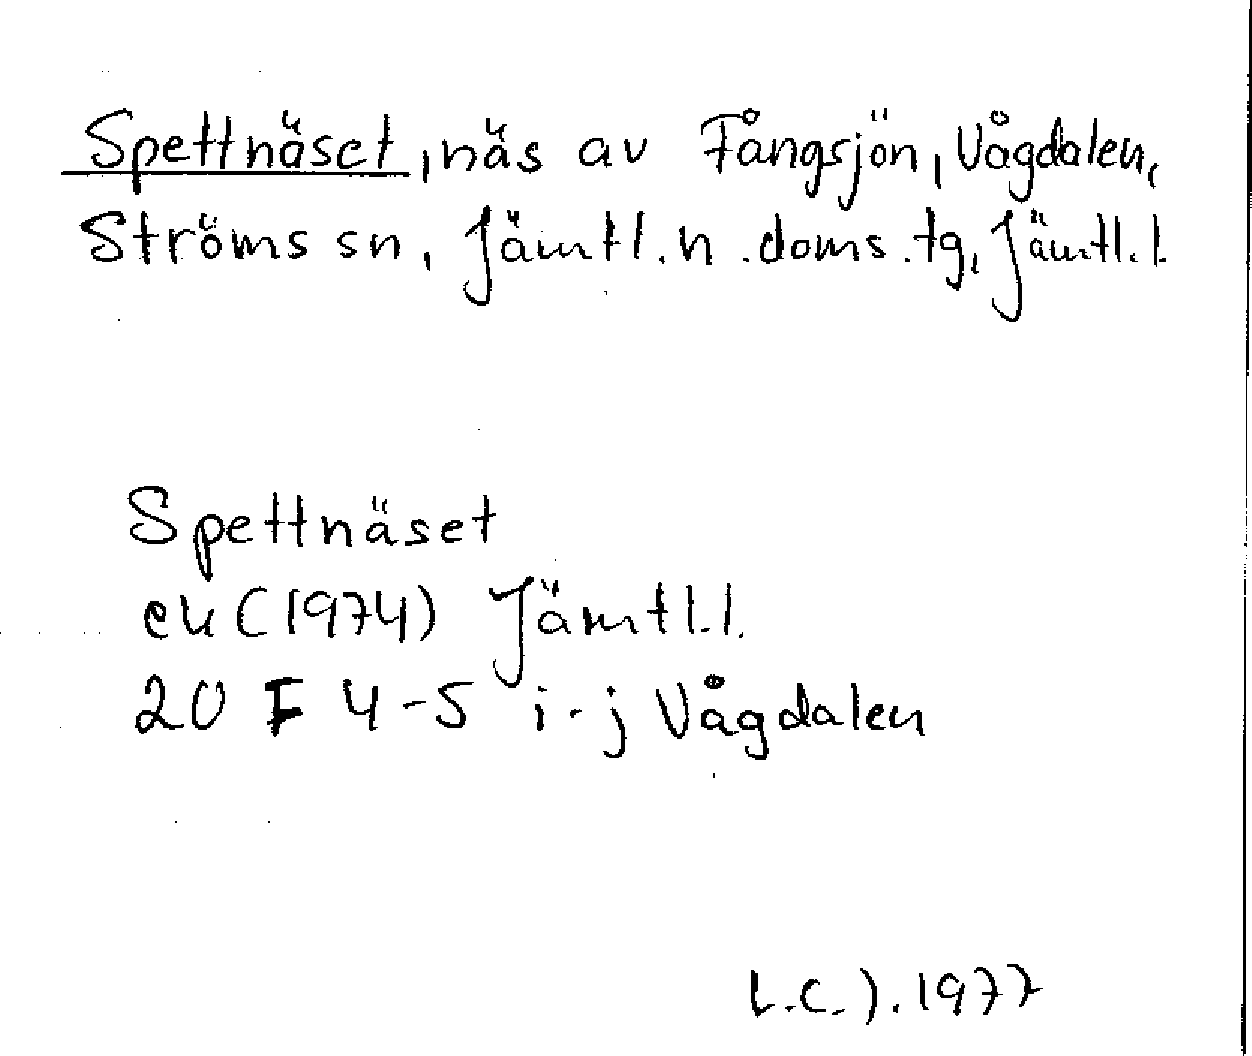 Spettnäset, näs av Fångsjön, Vågdalen,
Ströms sn, Jämtl. n. doms. tg, Jämtl. l.
Spettnäset
ek (1974) Jämtl. l.
20 F 4-5 i-j Vågdalen
L.C.J. 1977